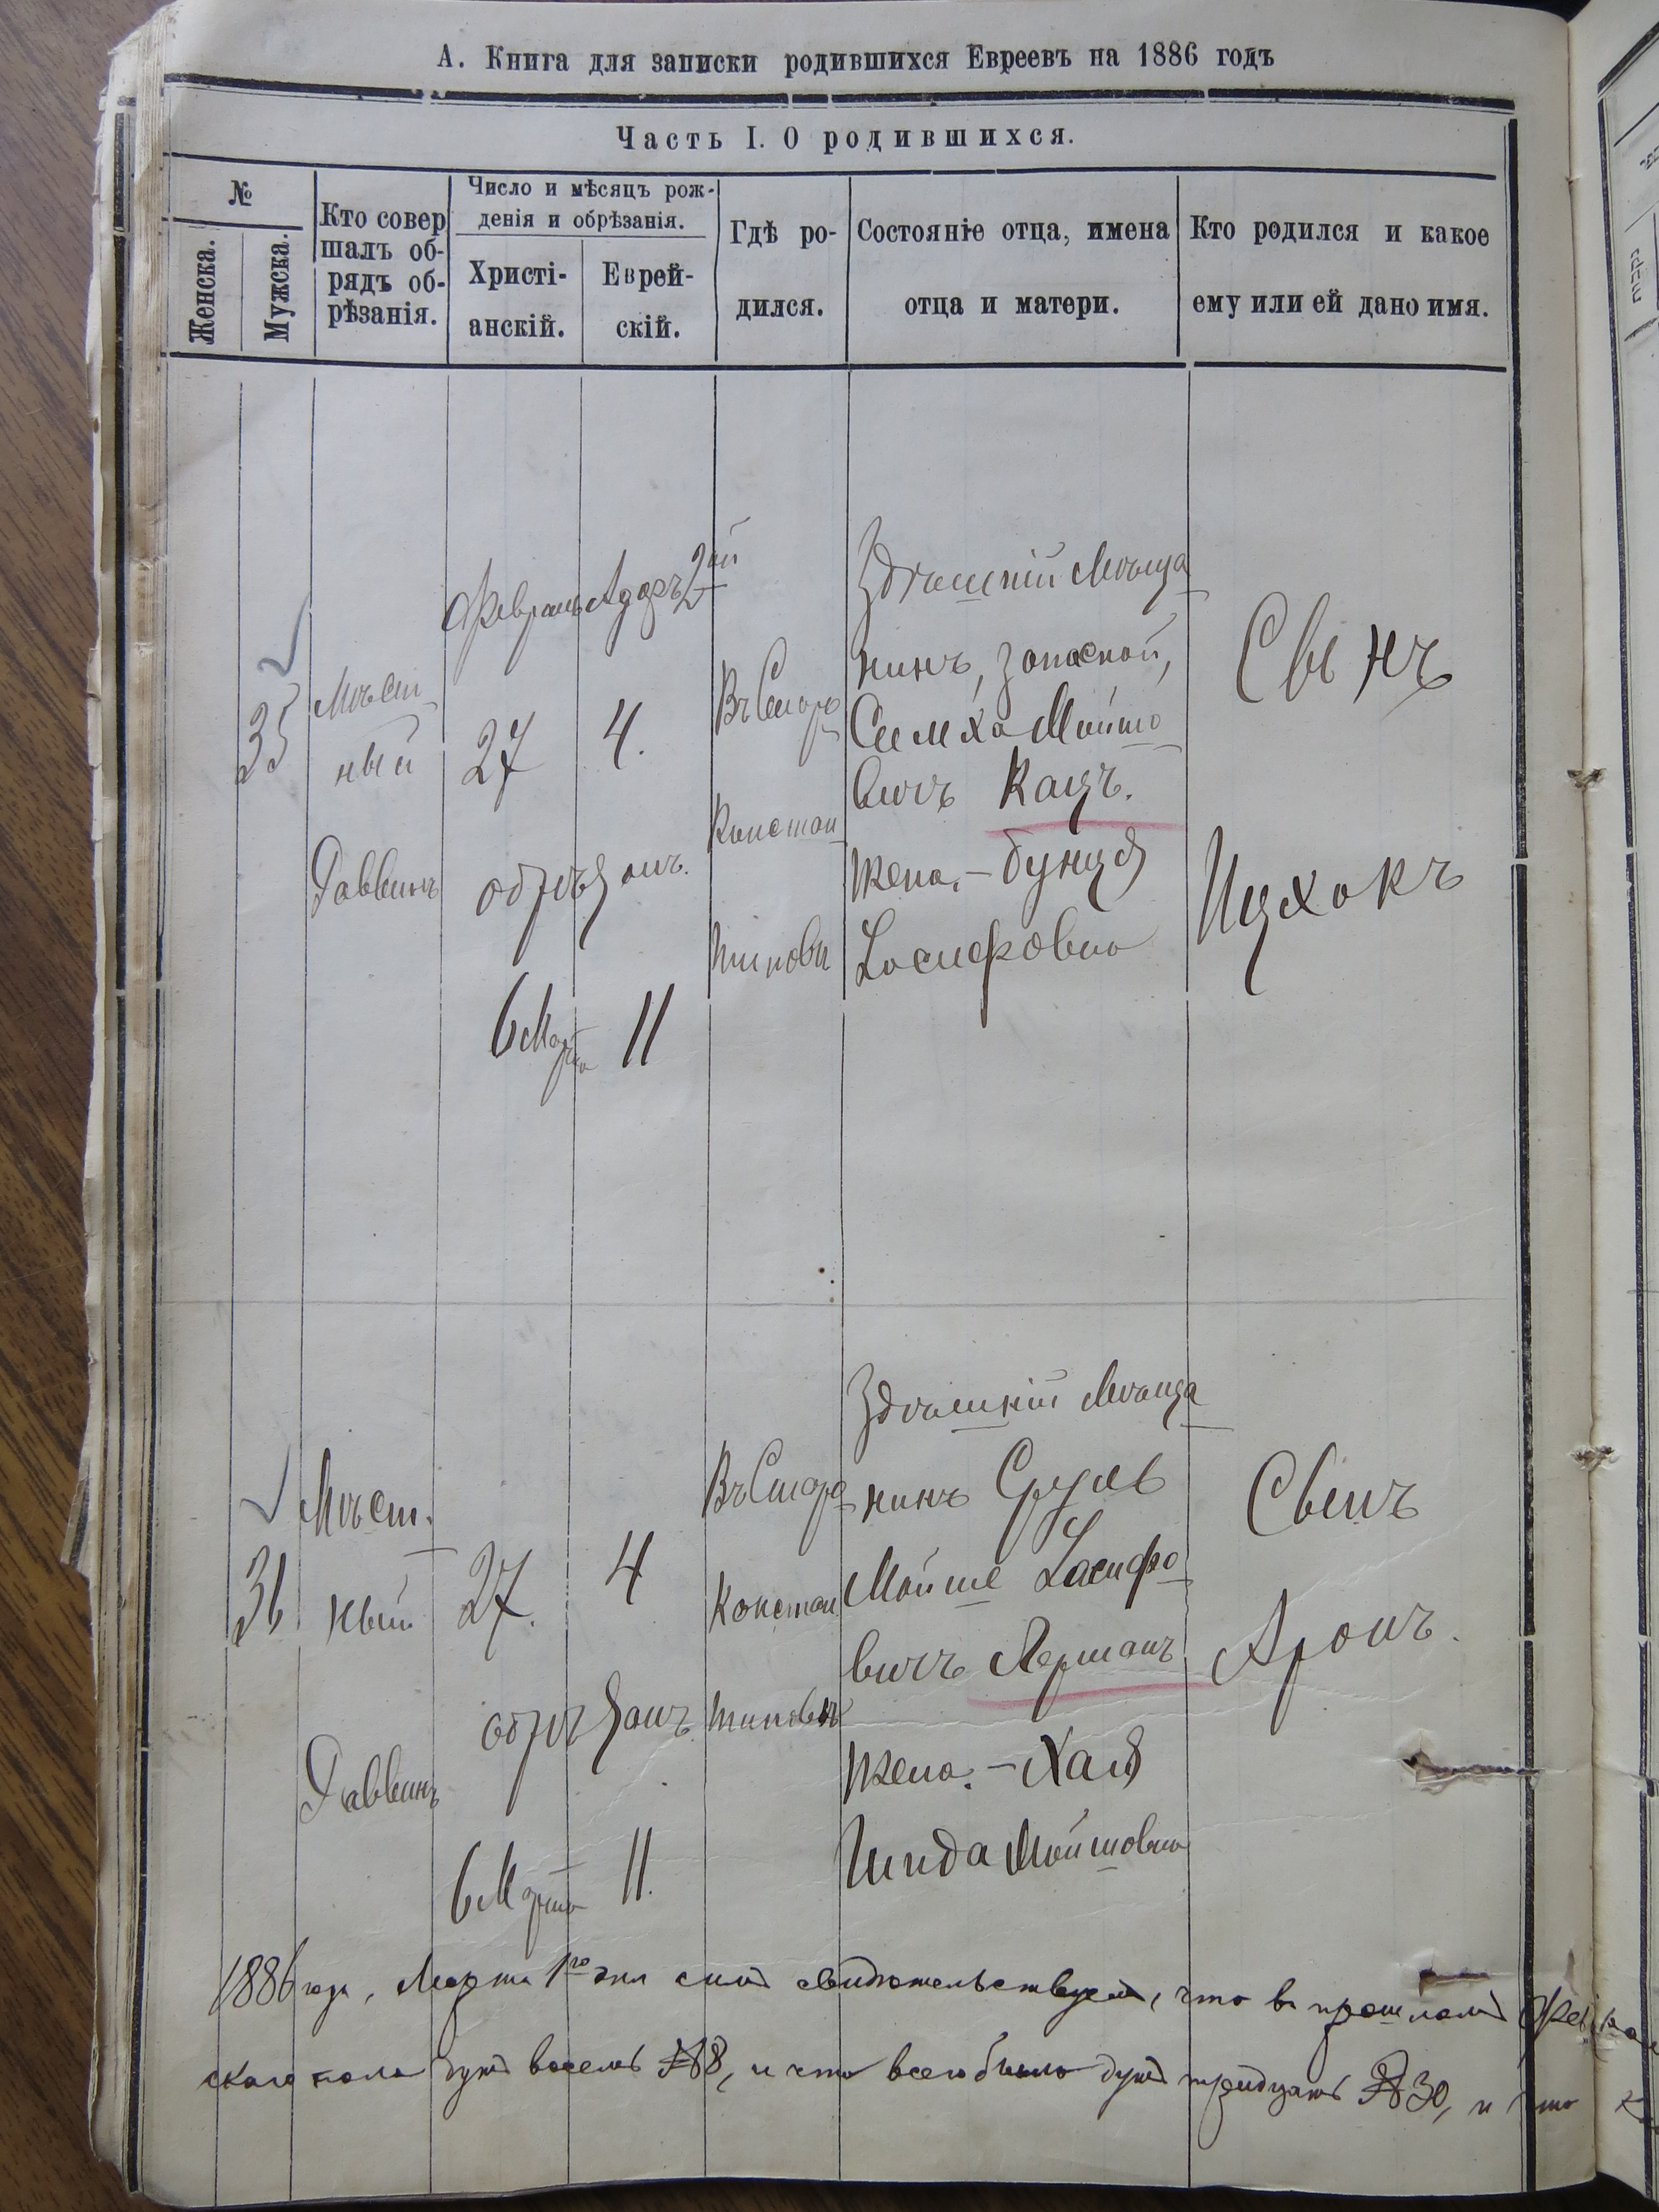 А. Книга для записки родившихся Евреевъ на 1886 годъ
Часть I. О родившихся.
№
Женска.
Мужска.
Кто совер
шалъ об-
рядъ об-
рѣзанія.
Число и мѣсяцъ рож-
денія и обрѣзанія.
Христі-
анскій.
Еврей-
скій.
Гдѣ ро-
дился.
Состояніе отца, имена
отца и матери.
Кто родился и какое
ему или ей дано имя.
35
Мѣст
ный
Раввинъ
Февраль
27
обрѣзанъ.
6 Марта
Адаръ 2ой
4.
11
Въ Старо
Констан
тиновѣ
Здѣшній Мѣща
нинъ, запасной,
Симха Мойшо
вичъ Кацъ.
Жена. – Бунця
Іосифовна
Сынъ
Ицхокъ
36
Мѣст.
ный
Раввинъ
27.
обрѣзанъ
6 Марта
4
11.
Въ Старо
Констан
тиновѣ
Здѣшній Мѣща
нинъ Сруль
Мойше Іосифо
вичъ Лерманъ
Жена. – Хая
Гинда Мойшовна
Сынъ
Аронъ.
1886 года, Марта 1го дня симъ свидѣтельствуемъ, что въ прошломъ
скаго пола душъ восемь № 8, и что всего было душъ тридцать № 30, и что